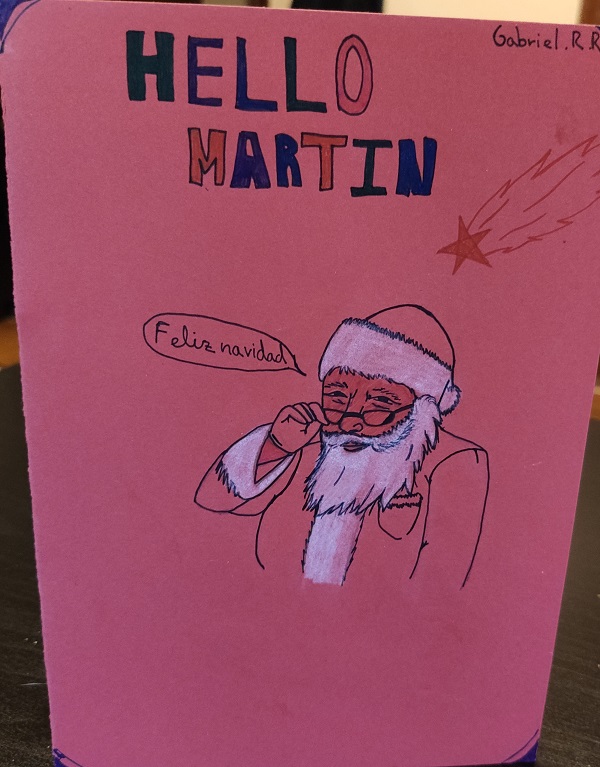 Gabriel.R.R
HELLO
MARTIN
Feliz navidad